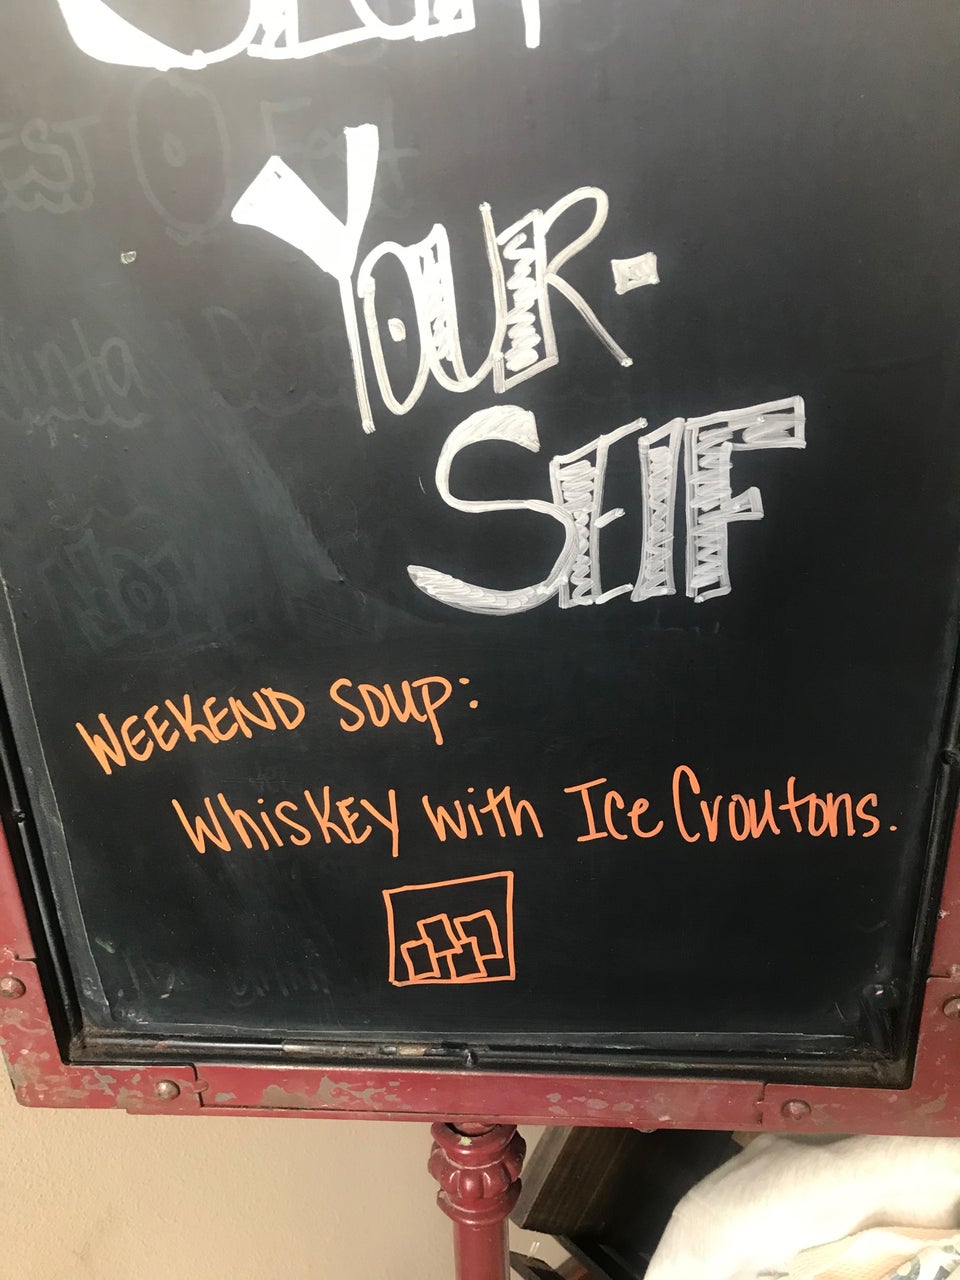 YOUR-
SElF
WEEKEND SOUP:
WhisKEY with Ice Croutons.